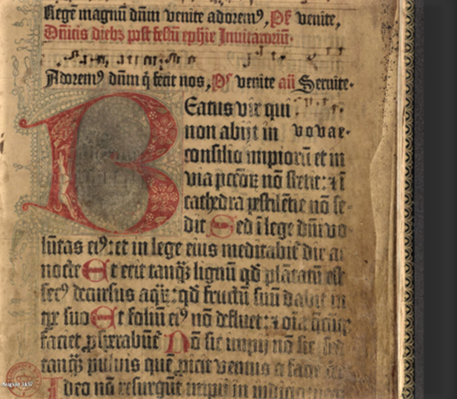 Rege magnū dn̄m venite adoremꝰ, Ps̄ venite,
Dn̄icis diebꝫ post festū ephīe Inuitatoriū.
Adoremꝰ dn̄m q̄ fecit nos, Ps̄ venite an̄ Seruite.
Beatus vir qui
non abijt in e v o v a e.
consilio impioꝝ et in
via pccōꝝ nō stetit: ⁊ ī
cathedra pestilētie nō se-
dit Sed ī lege dn̄i vo
lūtas eiꝰ: et in lege eius meditabit̄ die ac
nocte Et erit tanqꝫ lignū qd̄ plātatū est
secꝰ decursus aqꝝ: qd̄ fructū suū dabit in
tꝑe suo Et foliū eiꝰ nō defluet: ⁊ oīa
faciet ꝓsperabūt̄ Nō sic impij nō sic sed
tanqꝫ puluis quē ꝓicit ventus a facie
Ideo nō resurgūt impij in